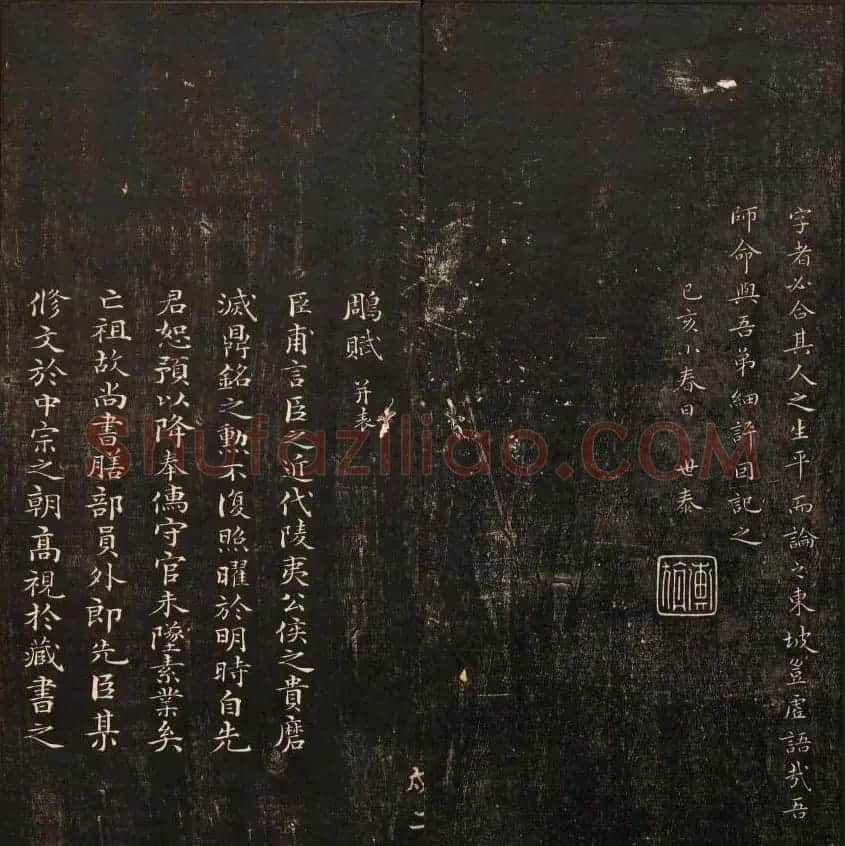 字者必合其人之生平而論之東坡豈虛語哉吾
師命與吾弟細評因記之
己亥小春日 世泰
鵰賦 并表
臣甫言臣之近代陵夷公侯之貴磨
滅鼎銘之勲不復照曜於明時自先
君恕預以降奉儒守官未墜素業矣
亡祖故尚書膳部員外郎先臣某
修文於中宗之朝高視於藏書之
太二
Shufaziliao.COM